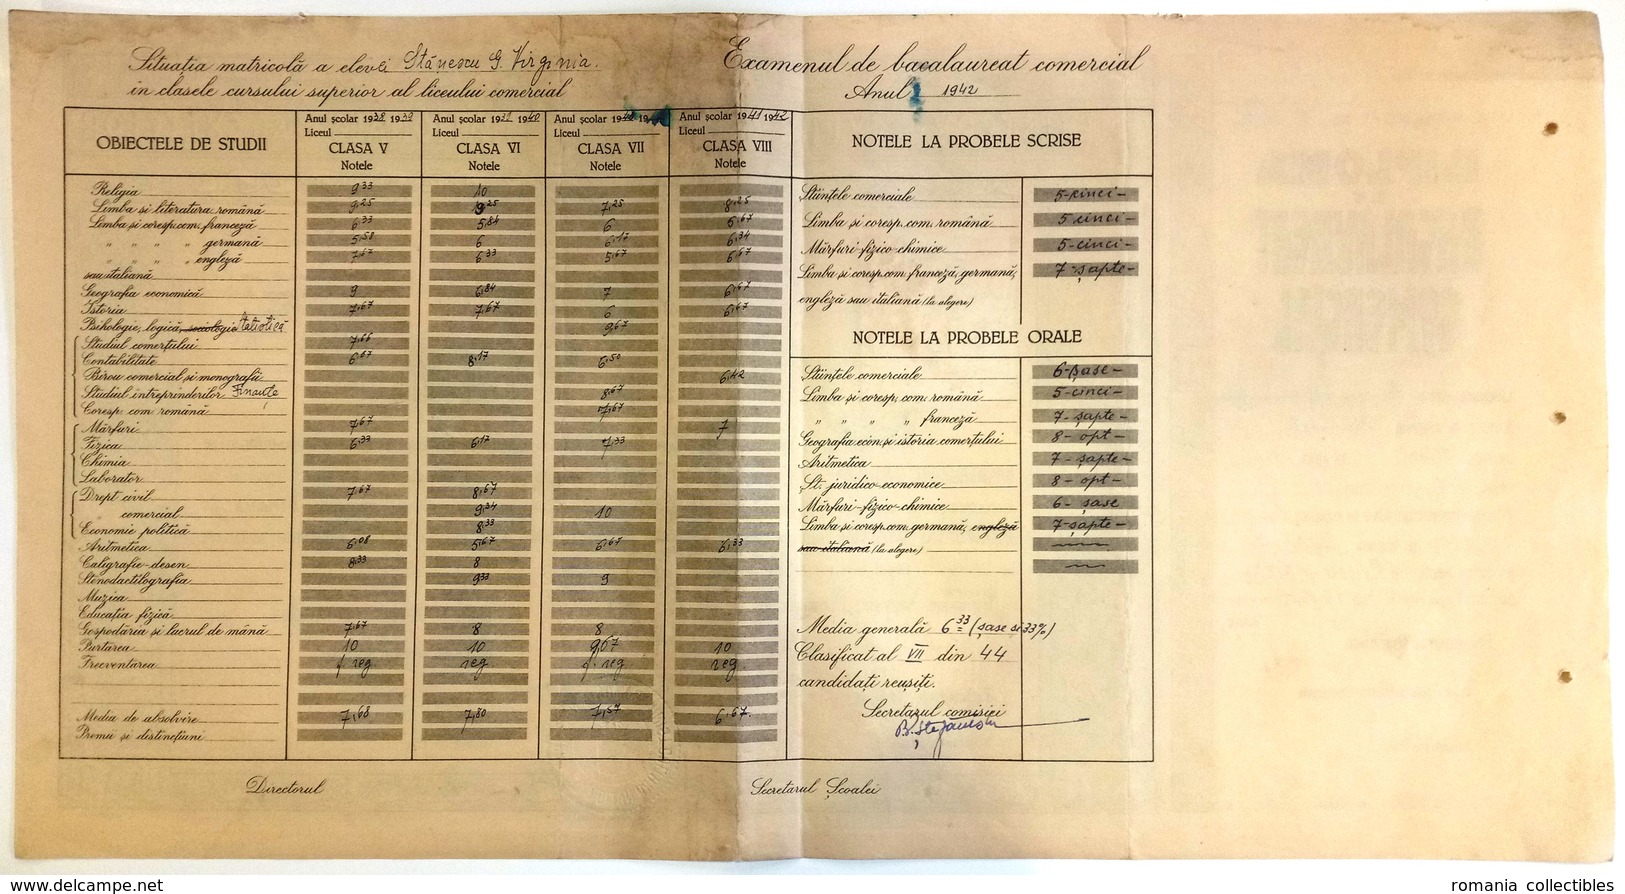 Situația matricolă a elevei Stănescu G. Virginia.
în clasele cursului superior al liceului comercial
Examenul de bacalaureat comercial
Anul 1942
OBIECTELE DE STUDII
Anul școlar 1938 1939 Liceul CLASA V Notele
Anul școlar 1939 1940 Liceul CLASA VI Notele
Anul școlar 19 19 Liceul CLASA VII Notele
Anul școlar 1941 1942 Liceul CLASA VIII Notele
Religia 9 33 10
Limba și literatura română 9,25 9,25 7,25 8,25
Limba și coresp. com. franceză 6 33 5,84 6 6,67
" " " " germană 5,58 6 6,17 6,34
" " " " engleză 7,67 6 33 5,67 6,67
sau italiană
Geografia economică 9 6,84 7 6,67
Istoria 7,67 7,67 6 6,67
Psihologie, logică, sociologie Statistică 9,67
Studiul comerțului 7,66
Contabilitate 6,67 8,17 6,50
Birou comercial și monografii 6,42
Studiul întreprinderilor Finanțe 8,67
Coresp. com. română 7,67
Mărfuri 7,67 7
Fizica 6,33 6,17 7,33
Chimia
Laborator
Drept civil 7,67 8,67
" comercial 9,34 10
Economie politică 8,33
Aritmetica 6,08 5,67 6,67 6,33
Caligrafie-desen 8,33 8
Stenodactilografia 9 33 9
Muzica
Educația fizică
Gospodăria și lucrul de mână 7,67 8 8
Purtarea 10 10 9,67 10
Frecventarea f. reg reg. f. reg reg.
Media de absolvire 7,68 7,80 7,57 6,67.
Premii și distincțiuni
Directorul
Secretarul Școalei
NOTELE LA PROBELE SCRISE
Științele comerciale 5-cinci-
Limba și coresp. com. română 5 cinci-
Mărfuri-fizico-chimice 5-cinci-
Limba și coresp. com. franceză, germană, 7-șapte-
engleză sau italiană (la alegere)
NOTELE LA PROBELE ORALE
Științele comerciale 6-șase-
Limba și coresp. com. română 5-cinci-
" " " " franceză 7-șapte-
Geografia econ. și istoria comerțului 8-opt-
Aritmetica 7-șapte-
Șt. juridico-economice 8-opt-
Mărfuri-fizico-chimice 6-șase
Limba și coresp. com. germană, engleză 7-șapte-
sau italiană (la alegere)
Media generală 6 33 (șase și 33%)
Clasificat al VII din 44
candidați reușiți.
Secretarul comisiei
romania collectibles
www.delcampe.net